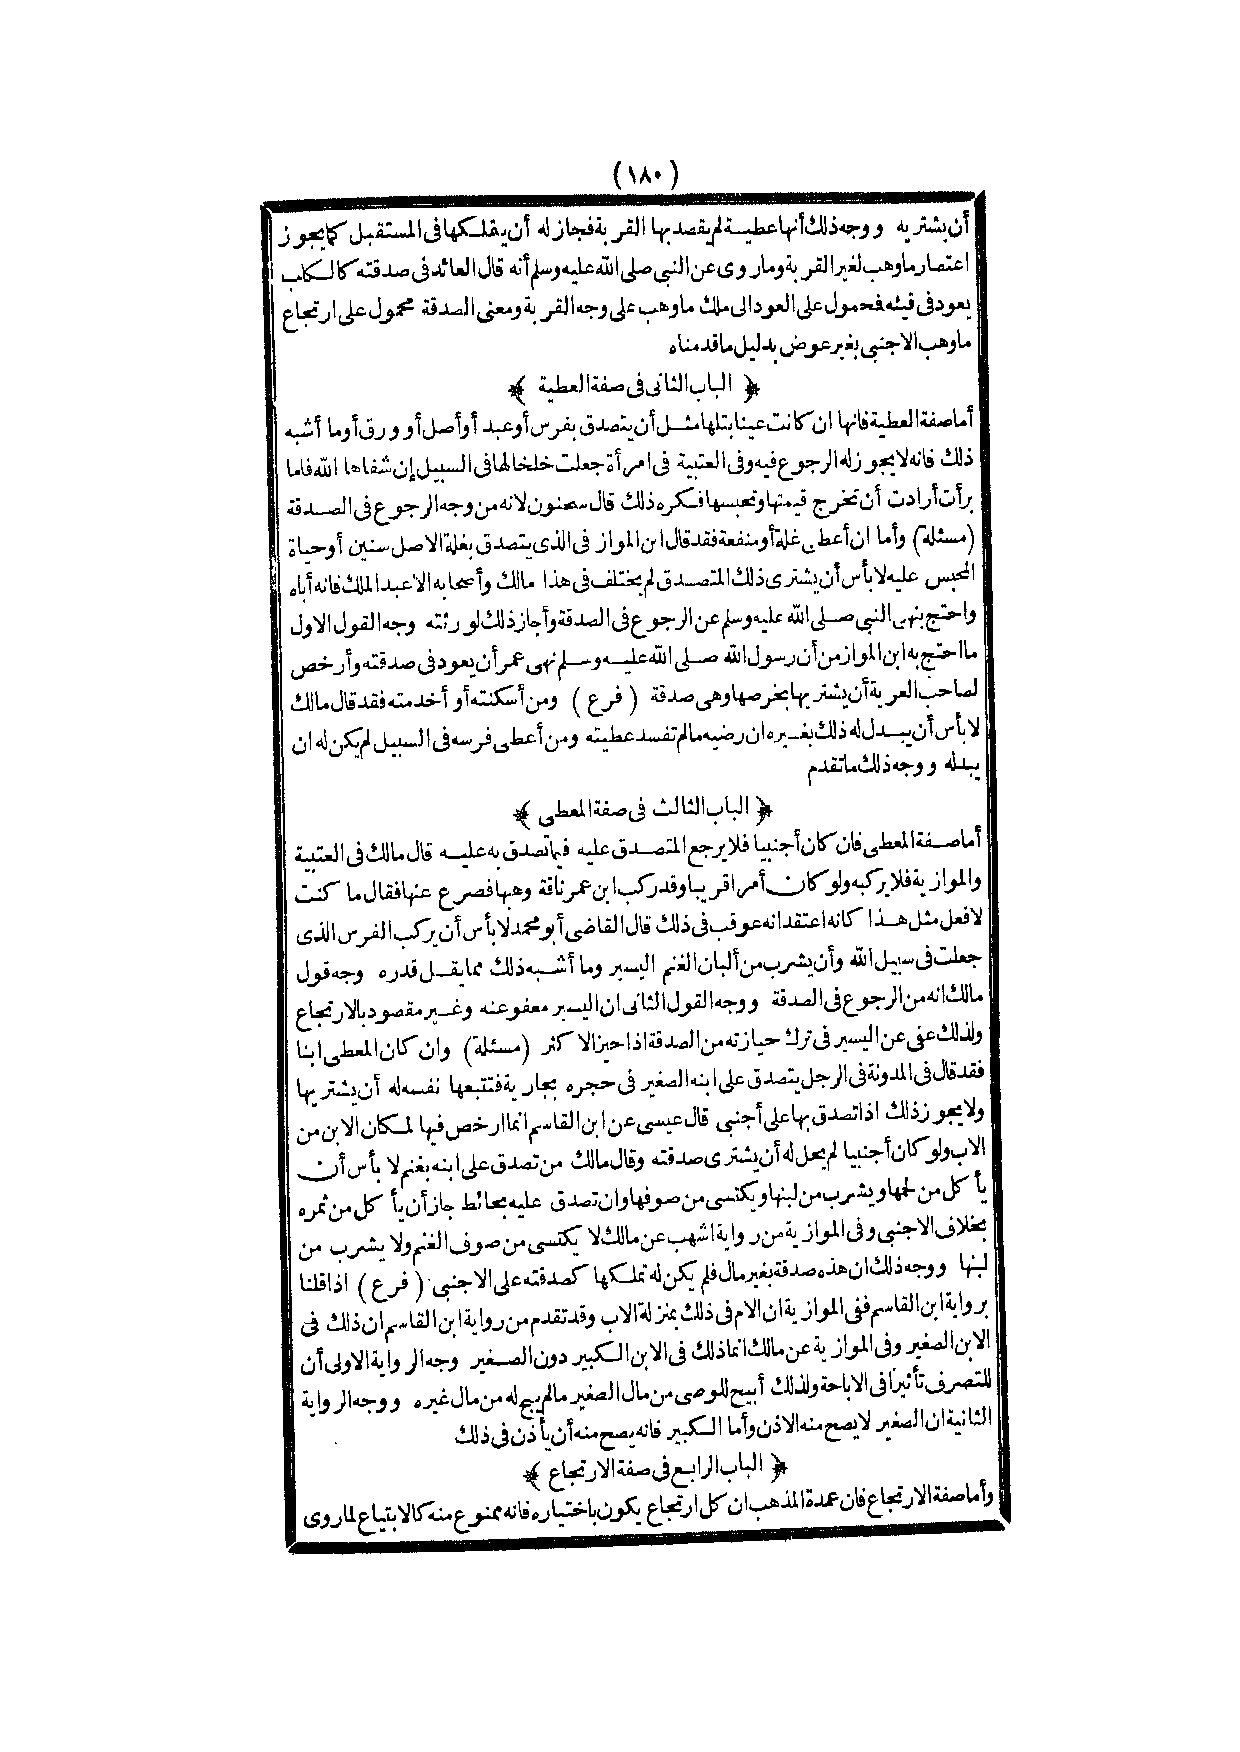 (١٨٠)
أن يشتريه ووجه ذلك أنها عطية لم يقصد بها القربة فجاز له أن يتملكها فى المستقبل كما يجوز
اعتصار ما وهب لغير القربة وما روى عن النبى صلى الله عليه وسلم أنه قال العائد فى صدقته كالكلب
يعود فى قيئه فحمول على العود الى ملك ما وهب على وجه القربة ومعنى الصدقة محمول على ارتجاع
ما وهب الاجنبى بغير عوض بدليل ما قدمناه
﴿ الباب الثانى فى صفة العطية ﴾
أما صفة العطية فانها ان كانت عينا بتلها مثل أن يتصدق بفرس أو عبد أو أصل أو ورق أو ما أشبه
ذلك فانه لا يجوز له الرجوع فيه وفى العتبية فى امرأة جعلت خلخالها فى السبيل إن شفاها الله فلما
برأت أرادت أن تخرج قيمتها وتحبسها فكره ذلك قال سحنون لانه من وجه الرجوع فى الصدقة
(مسئلة) وأما ان أعطى غلة أو منفعة فقد قال ابن المواز فى الذى يتصدق بغلة الاصل سنين أو حياة
المحبس عليه لا بأس أن يشترى ذلك المتصدق لم يختلف فى هذا مالك وأصحابه الا عبد الملك فانه أباه
واحتج بنهى النبى صلى الله عليه وسلم عن الرجوع فى الصدقة وأجاز ذلك لورثته وجه القول الاول
ما احتج به ابن المواز من أن رسول الله صلى الله عليه وسلم نهى عمر أن يعود فى صدقته وأرخص
لصاحب العرية أن يشتريها بخرصها وهى صدقة (فرع) ومن أسكنته أو أخدمته فقد قال مالك
لا بأس أن يبدل له ذلك بغيره ان رضيه ما لم تفسد عطيته ومن أعطى فرسه فى السبيل لم يكن له ان
يبدله ووجه ذلك ما تقدم
﴿ الباب الثالث فى صفة المعطى ﴾
أما صفة المعطى فان كان أجنبيا فلا يرجع المتصدق عليه فيما تصدق به عليه قال مالك فى العتبية
والموازية فلا يركبه ولو كان أمرا قريبا وقد ركب ابن عمر ناقة وهبها فصرع عنها فقال ما كنت
لافعل مثل هذا كانه اعتقد انه عوقب فى ذلك قال القاضى أبو محمد لا بأس أن يركب الفرس الذى
جعلت فى سبيل الله وأن يشرب من ألبان الغنم اليسير وما أشبه ذلك مما يقل قدره وجه قول
مالك انه من الرجوع فى الصدقة ووجه القول الثانى ان اليسير معفو عنه وغير مقصود بالارتجاع
ولذلك عفى عن اليسير فى ترك حيازته من الصدقة اذا حيز الاكثر (مسئلة) وان كان المعطى ابنا
فقد قال فى المدونة فى الرجل يتصدق على ابنه الصغير فى حجره بجارية فتتبعها نفسه له أن يشتريها
ولا يجوز ذلك اذا تصدق بها على أجنبى قال عيسى عن ابن القاسم انما ارخص فيها لمكان الابن من
الاب ولو كان أجنبيا لم يحل له أن يشترى صدقته وقال مالك من تصدق على ابنه بغنم لا بأس أن
يأكل من لحمها ويشرب من لبنها ويكتسى من صوفها وان تصدق عليه بحائط جاز أن يأكل من ثمره
بخلاف الاجنبى وفى الموازية من رواية اشهب عن مالك لا يكتسى من صوف الغنم ولا يشرب من
لبنها ووجه ذلك ان هذه صدقة بغير مال فلم يكن له تملكها كصدقته على الاجنبى (فرع) اذا قلنا
برواية ابن القاسم ففى الموازية ان الام فى ذلك بمنزلة الاب وقد تقدم من رواية ابن القاسم ان ذلك فى
الابن الصغير وفى الموازية عن مالك انما ذلك فى الابن الكبير دون الصغير وجه الرواية الاولى أن
للتصرف تأثيرا فى الاباحة ولذلك أبيح للوصى من مال الصغير ما لم يبح له من مال غيره ووجه الرواية
الثانية ان الصغير لا يصح منه الاذن وأما الكبير فانه يصح منه أن يأذن فى ذلك
﴿ الباب الرابع فى صفة الارتجاع ﴾
وأما صفة الارتجاع فان عمدة المذهب ان كل ارتجاع يكون باختياره فانه ممنوع منه كالابتياع لما روى